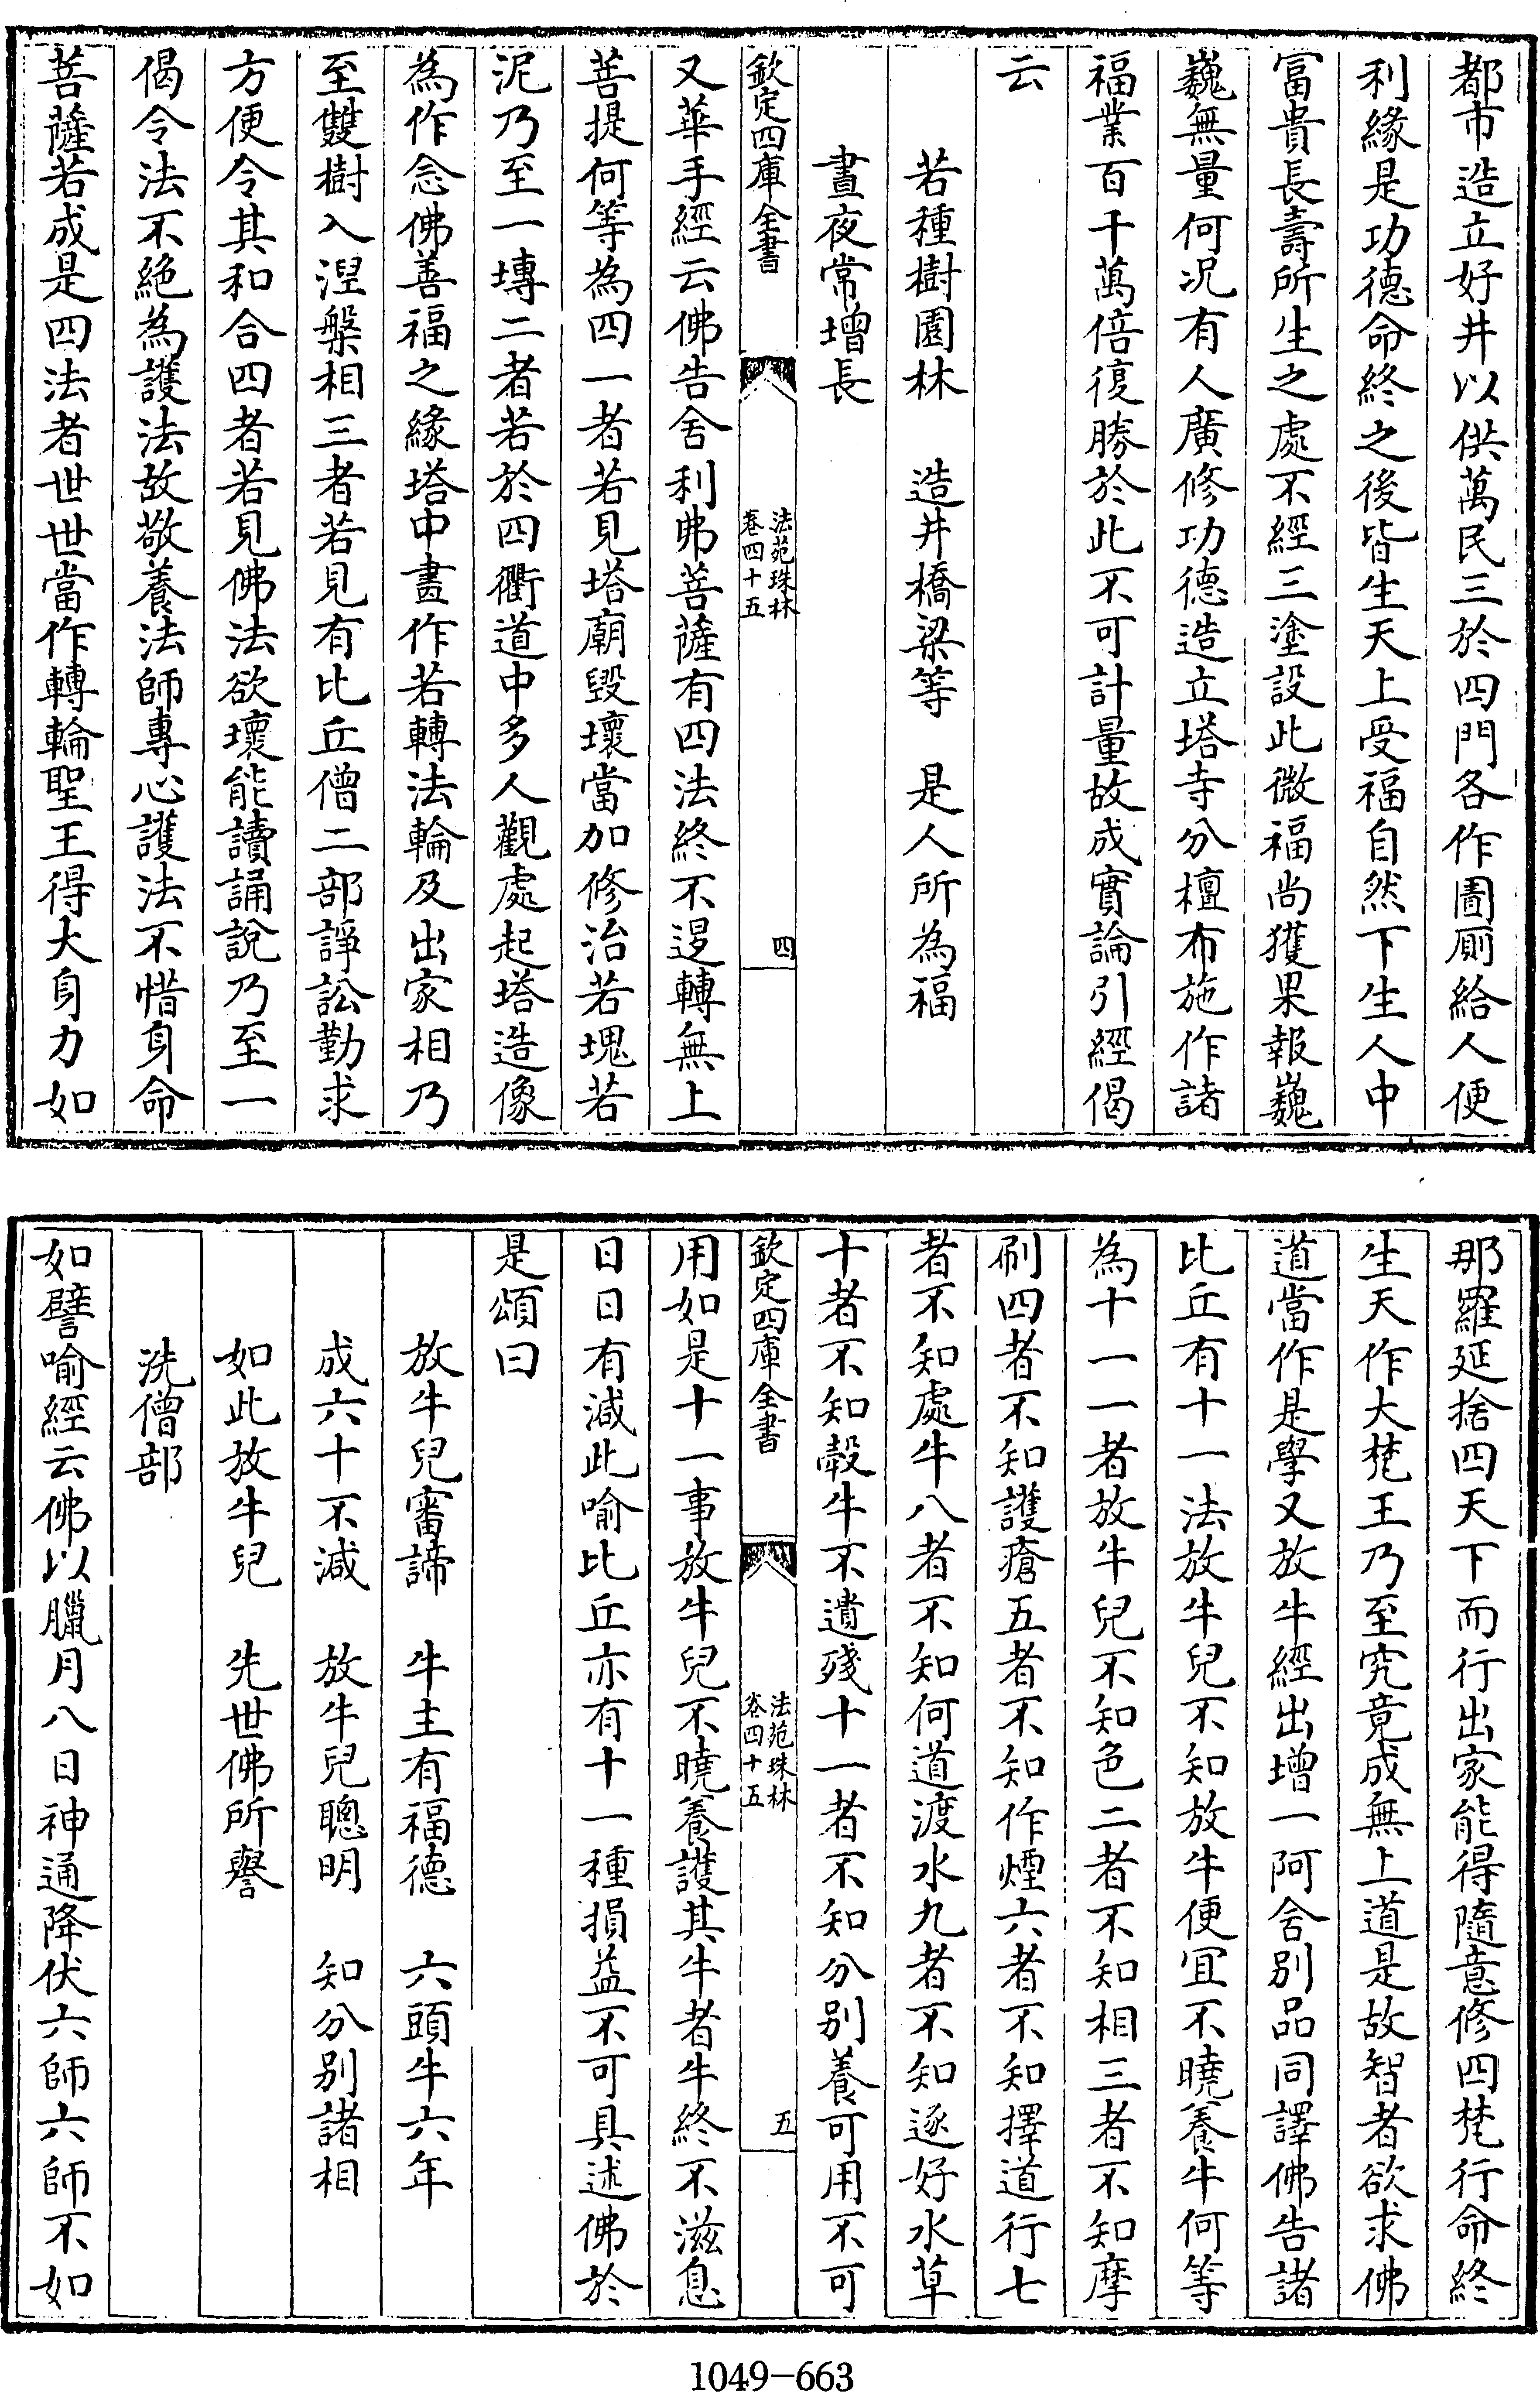 都市造立好井以供萬民三於四門各作圊厠給人便
利緣是功德命終之後皆生天上受福自然下生人中
富貴長壽所生之處不經三塗設此微福尚獲果報巍
巍無量何况有人廣修功德造立塔寺分檀布施作諸
福業百千萬倍復勝於此不可計量故成實論引經偈
云
若種樹園林　造井橋梁等　是人所為福
晝夜常增長
欽定四庫全書
法苑珠林
卷四十五
四
又華手經云佛告舍利弗菩薩有四法終不退轉無上
菩提何等為四一者若見塔廟毀壞當加修治若塊若
泥乃至一塼二者若於四衢道中多人觀處起塔造像
為作念佛善福之緣塔中畫作若轉法輪及出家相乃
至雙樹入湼槃相三者若見有比丘僧二部諍訟勤求
方便令其和合四者若見佛法欲壞能讀誦說乃至一
偈令法不絶為護法故敬養法師專心護法不惜身命
菩薩若成是四法者世世當作轉輪聖王得大身力如
那羅延捨四天下而行出家能得隨意修四梵行命終
生天作大梵王乃至究竟成無上道是故智者欲求佛
道當作是學又放牛經出增一阿含别品同譯佛告諸
比丘有十一法放牛兒不知放牛便宜不曉養牛何等
為十一一者放牛兒不知色二者不知相三者不知摩
刷四者不知護瘡五者不知作煙六者不知擇道行七
者不知處牛八者不知何道渡水九者不知逐好水草
十者不知𣫍牛不遺殘十一者不知分别養可用不可
欽定四庫全書
法苑珠林
卷四十五
五
用如是十一事放牛兒不曉養護其牛者牛終不滋息
日日有減此喻比丘亦有十一種損益不可具述佛於
是頌曰
放牛兒審諦　牛主有福德　六頭牛六年
成六十不減　放牛兒聰明　知分别諸相
如此放牛兒　先世佛所譽
洗僧部
如譬喻經云佛以臘月八日神通降伏六師六師不如
1049-663